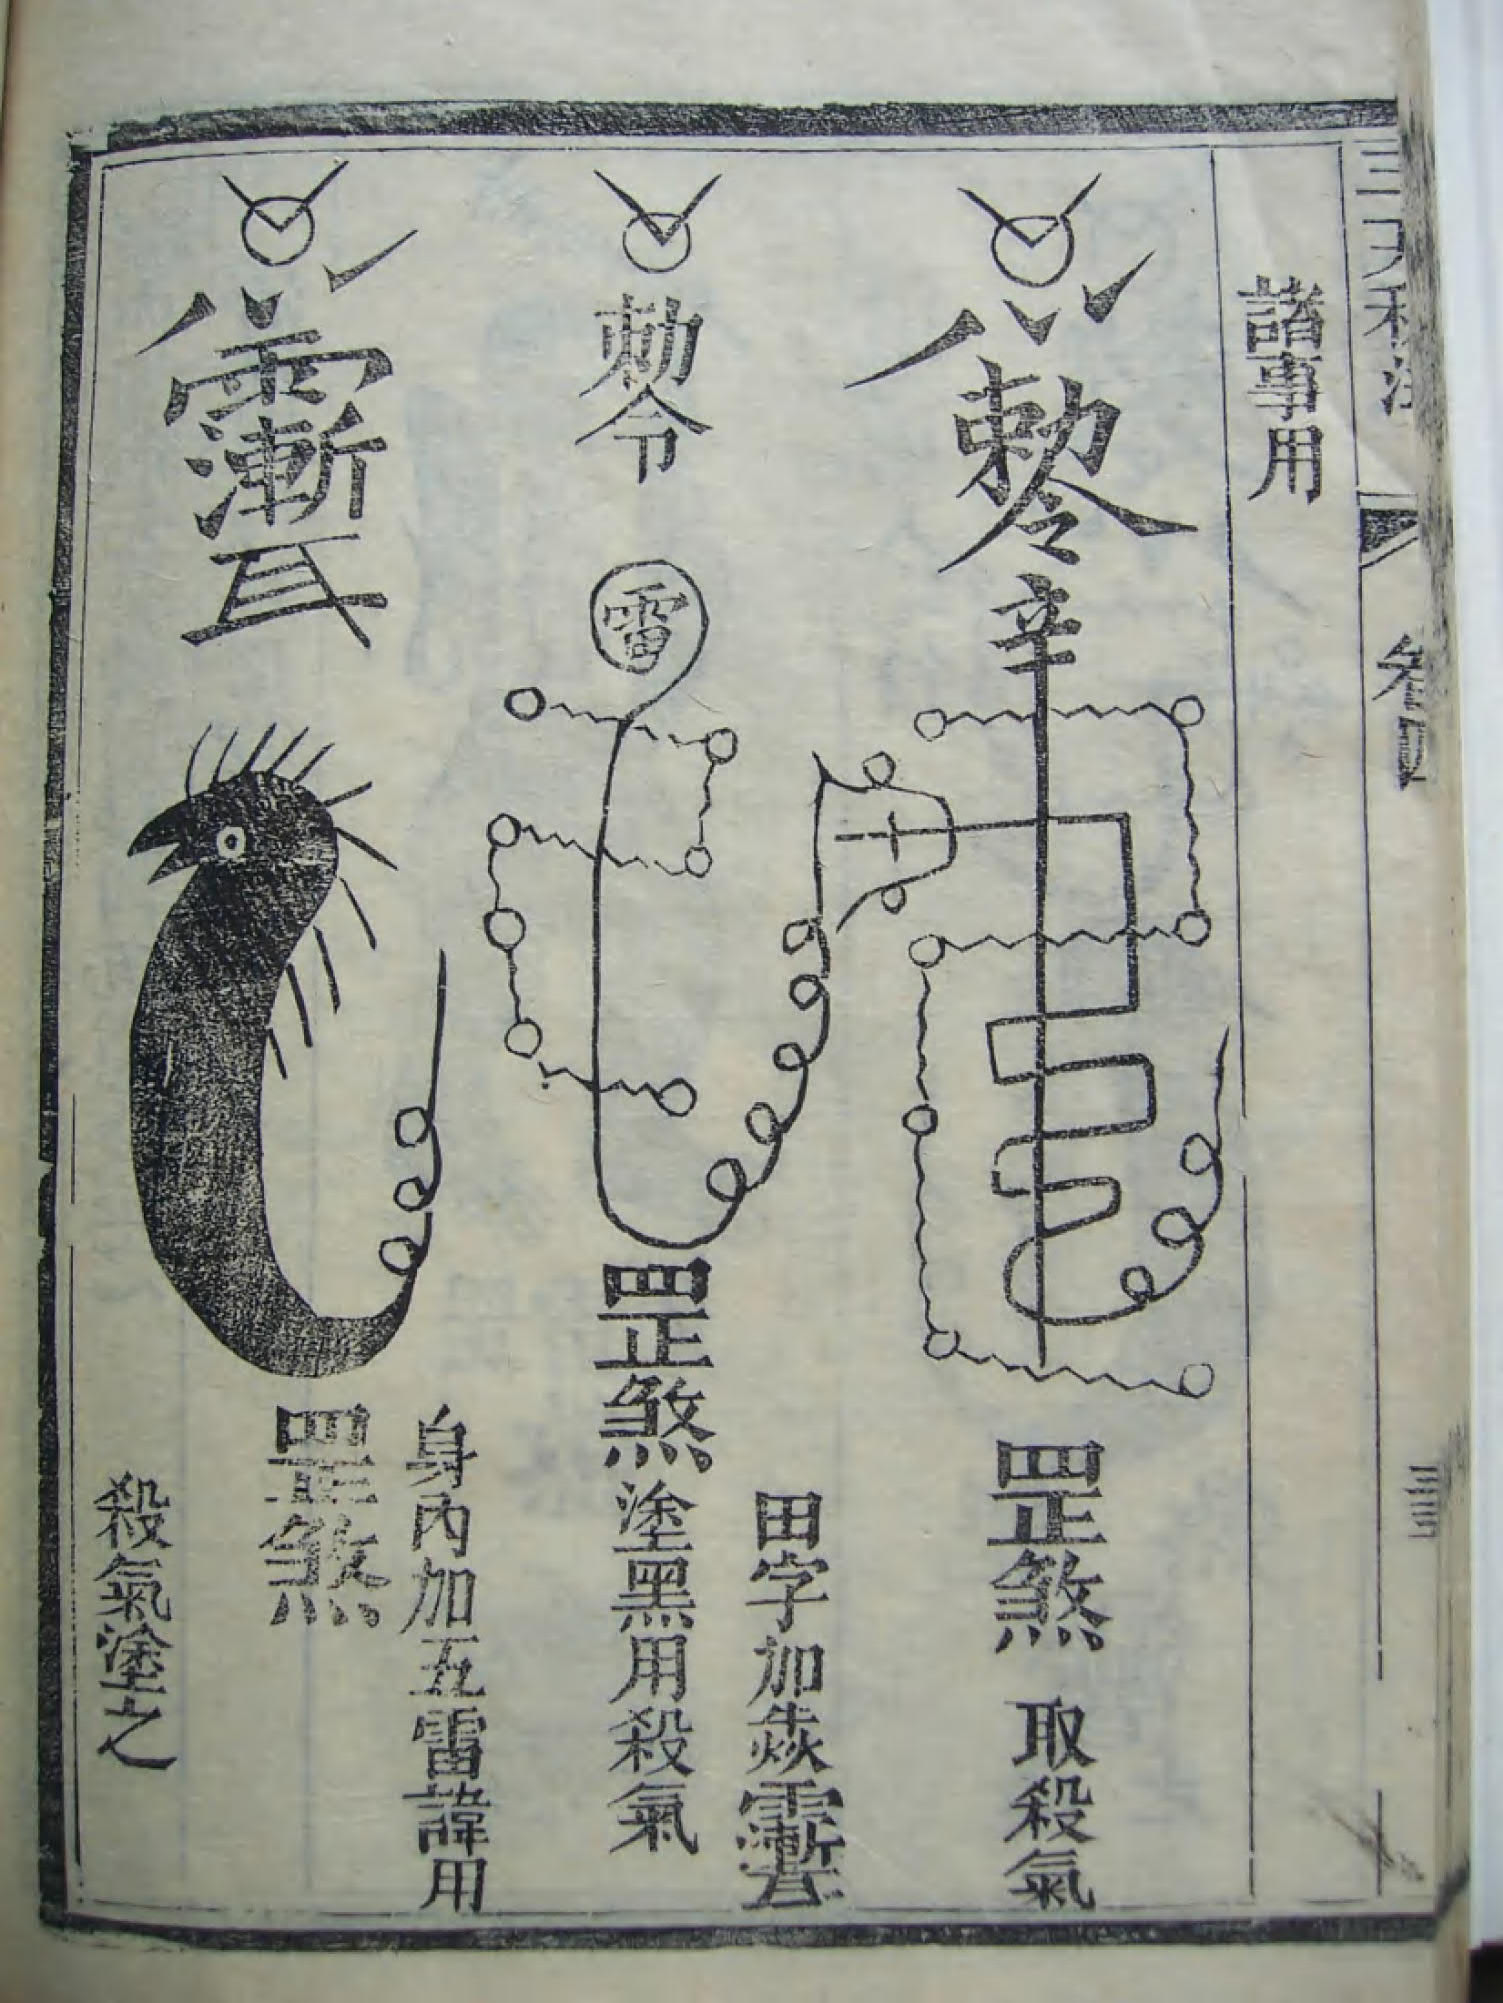 卷四
三
諸事用
勅令
辛
罡煞
取殺氣
勅令
雷
田字加焱
罡煞
塗黑用殺氣
身內加五雷諱用
罡煞
殺氣塗之